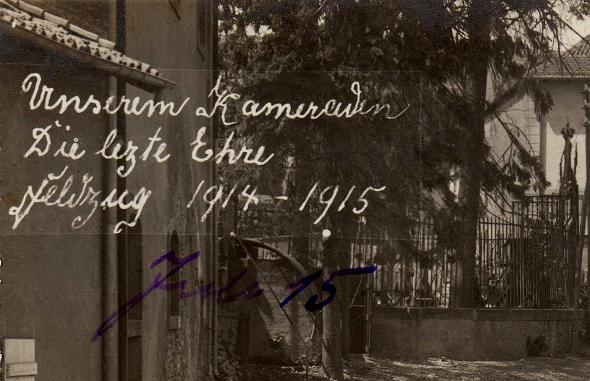 Unserem Kameraden
Die lezte Ehre
Feldzug 1914 - 1915
Juli 15